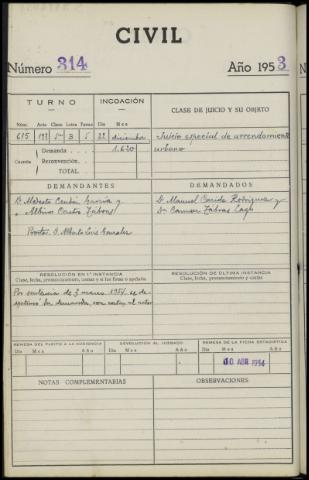 CIVIL
Número 314 Año 1953
TURNO INCOACIÓN CLASE DE JUICIO Y SU OBJETO
Núm. Acta Clase Letra Turno Día Mes
615 5ª B 5 22 diciembre Juicio especial de arrendamiento
Cuantía Demanda 1.620 urbano
Reconvención.
TOTAL
DEMANDANTES DEMANDADOS
D. Modesto García y D. Manuel Rodriguez y
Albino Castro Dª Carmen Lago
Procdor. D. Luis Gonzalez
RESOLUCIÓN EN 1ª INSTANCIA RESOLUCIÓN DE ÚLTIMA INSTANCIA
Clase, fecha, pronunciamiento, costas y si fue firme o apelada Clase, fecha, pronunciamiento y costas
Por sentencia de 3 marzo 1954 se de-
sestimó la demanda con costas al actor
REMESA DEL PLEITO A LA AUDIENCIA DEVOLUCIÓN AL JUZGADO REMESA DE LA FICHA ESTADÍSTICA
Día Mes Año Día Mes Año Día Mes Año
10 ABR 1954
NOTAS COMPLEMENTARIAS OBSERVACIONES